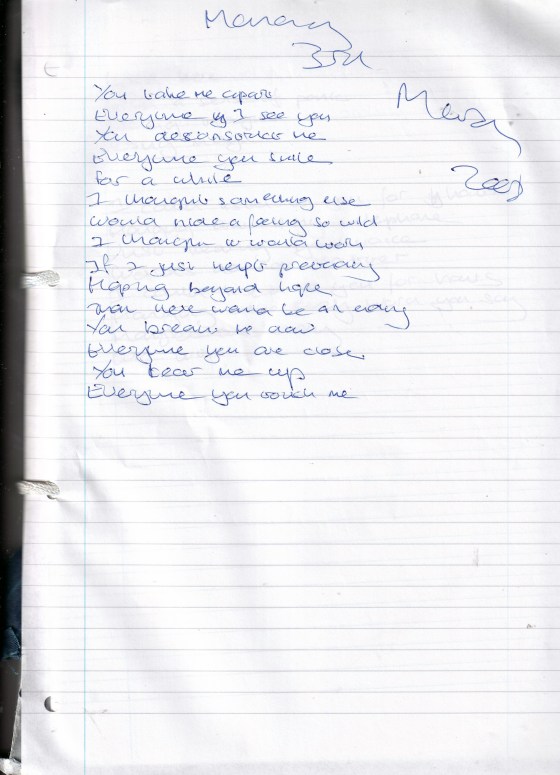 Monday
3rd
March
2003
You take me apart
Everytime I see you
You deconstruct me
Everytime you smile
For a while
I thought something else
Would hide a feeling so wild
I thought it would work
If I just kept pretending
Hoping beyond hope
That there would be an ending
You break me down
Everytime you are close
You beat me up
Everytime you touch me